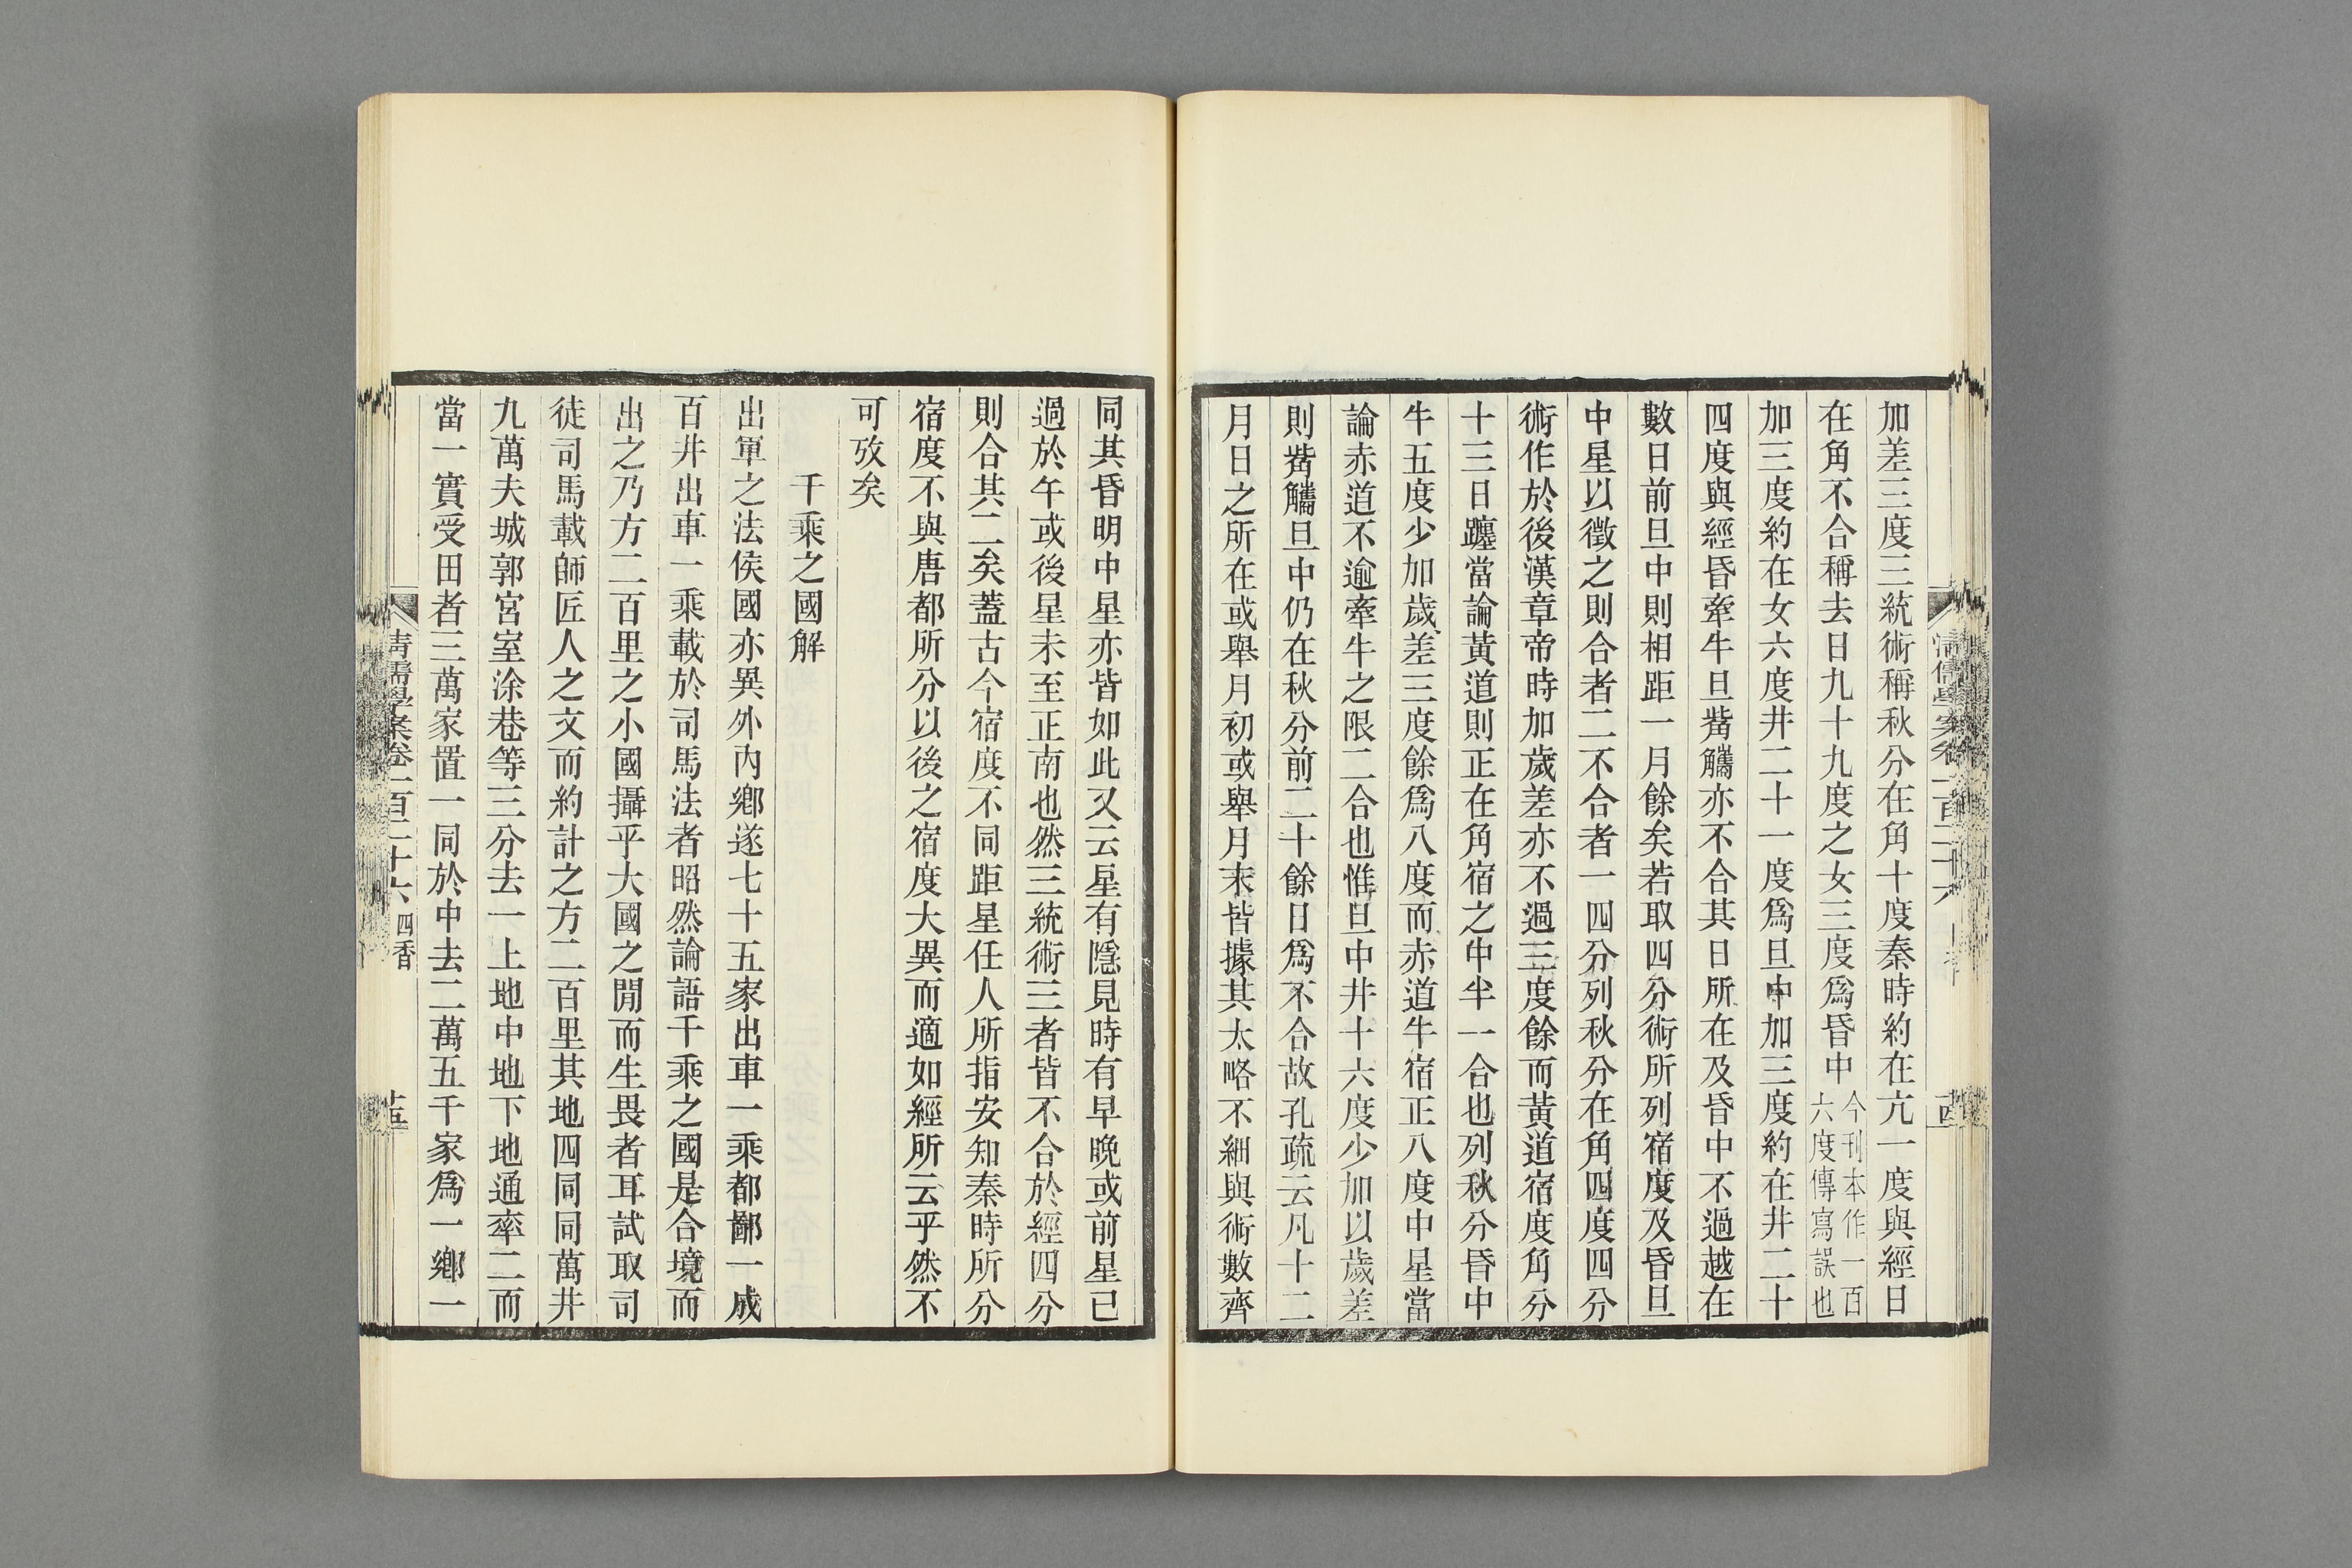 加差三度三統術稱秋分在角十度秦時約在亢一度與經日
在角不合稱去日九十九度之女三度爲昏中今刊本作一百六度傳寫誤也
加三度約在女六度井二十一度爲旦中加三度約在井二十
四度與經昏牽牛旦觜觿亦不合其日所在及昏中不過越在
數日前旦中則相距一月餘矣若取四分術所列宿度及昏旦
中星以徵之則合者二不合者一四分列秋分在角四度四分
術作於後漢章帝時加歲差亦不過三度餘而黃道宿度角分
十三日躔當論黃道則正在角宿之中半一合也列秋分昏中
牛五度少加歲差三度餘爲八度而赤道牛宿正八度中星當
論赤道不逾牽牛之限二合也惟旦中井十六度少加以歲差
則觜觿旦中仍在秋分前二十餘日爲不合故孔疏云凡十二
月日之所在或舉月初或舉月末皆據其大略不細與術數齊
同其昏明中星亦皆如此又云星有隱見時有早晚或前星已
過於午或後星未至正南也然三統術三者皆不合於經四分
則合其二矣蓋古今宿度不同距星任人所指安知秦時所分
宿度不與唐都所分以後之宿度大異而適如經所云乎然不
可攷矣
千乘之國解
出軍之法侯國亦異外內鄉遂七十五家出車一乘都鄙一成
百井出車一乘載於司馬法者昭然論語千乘之國是合境而
出之乃方二百里之小國攝乎大國之閒而生畏者耳試取司
徒司馬載師匠人之文而約計之方二百里其地四同同萬井
九萬夫城郭宮室涂巷等三分去一上地中地下地通率二而
當一實受田者三萬家置一同於中去二萬五千家爲一鄉一
清儒學案卷一百二十六 四香